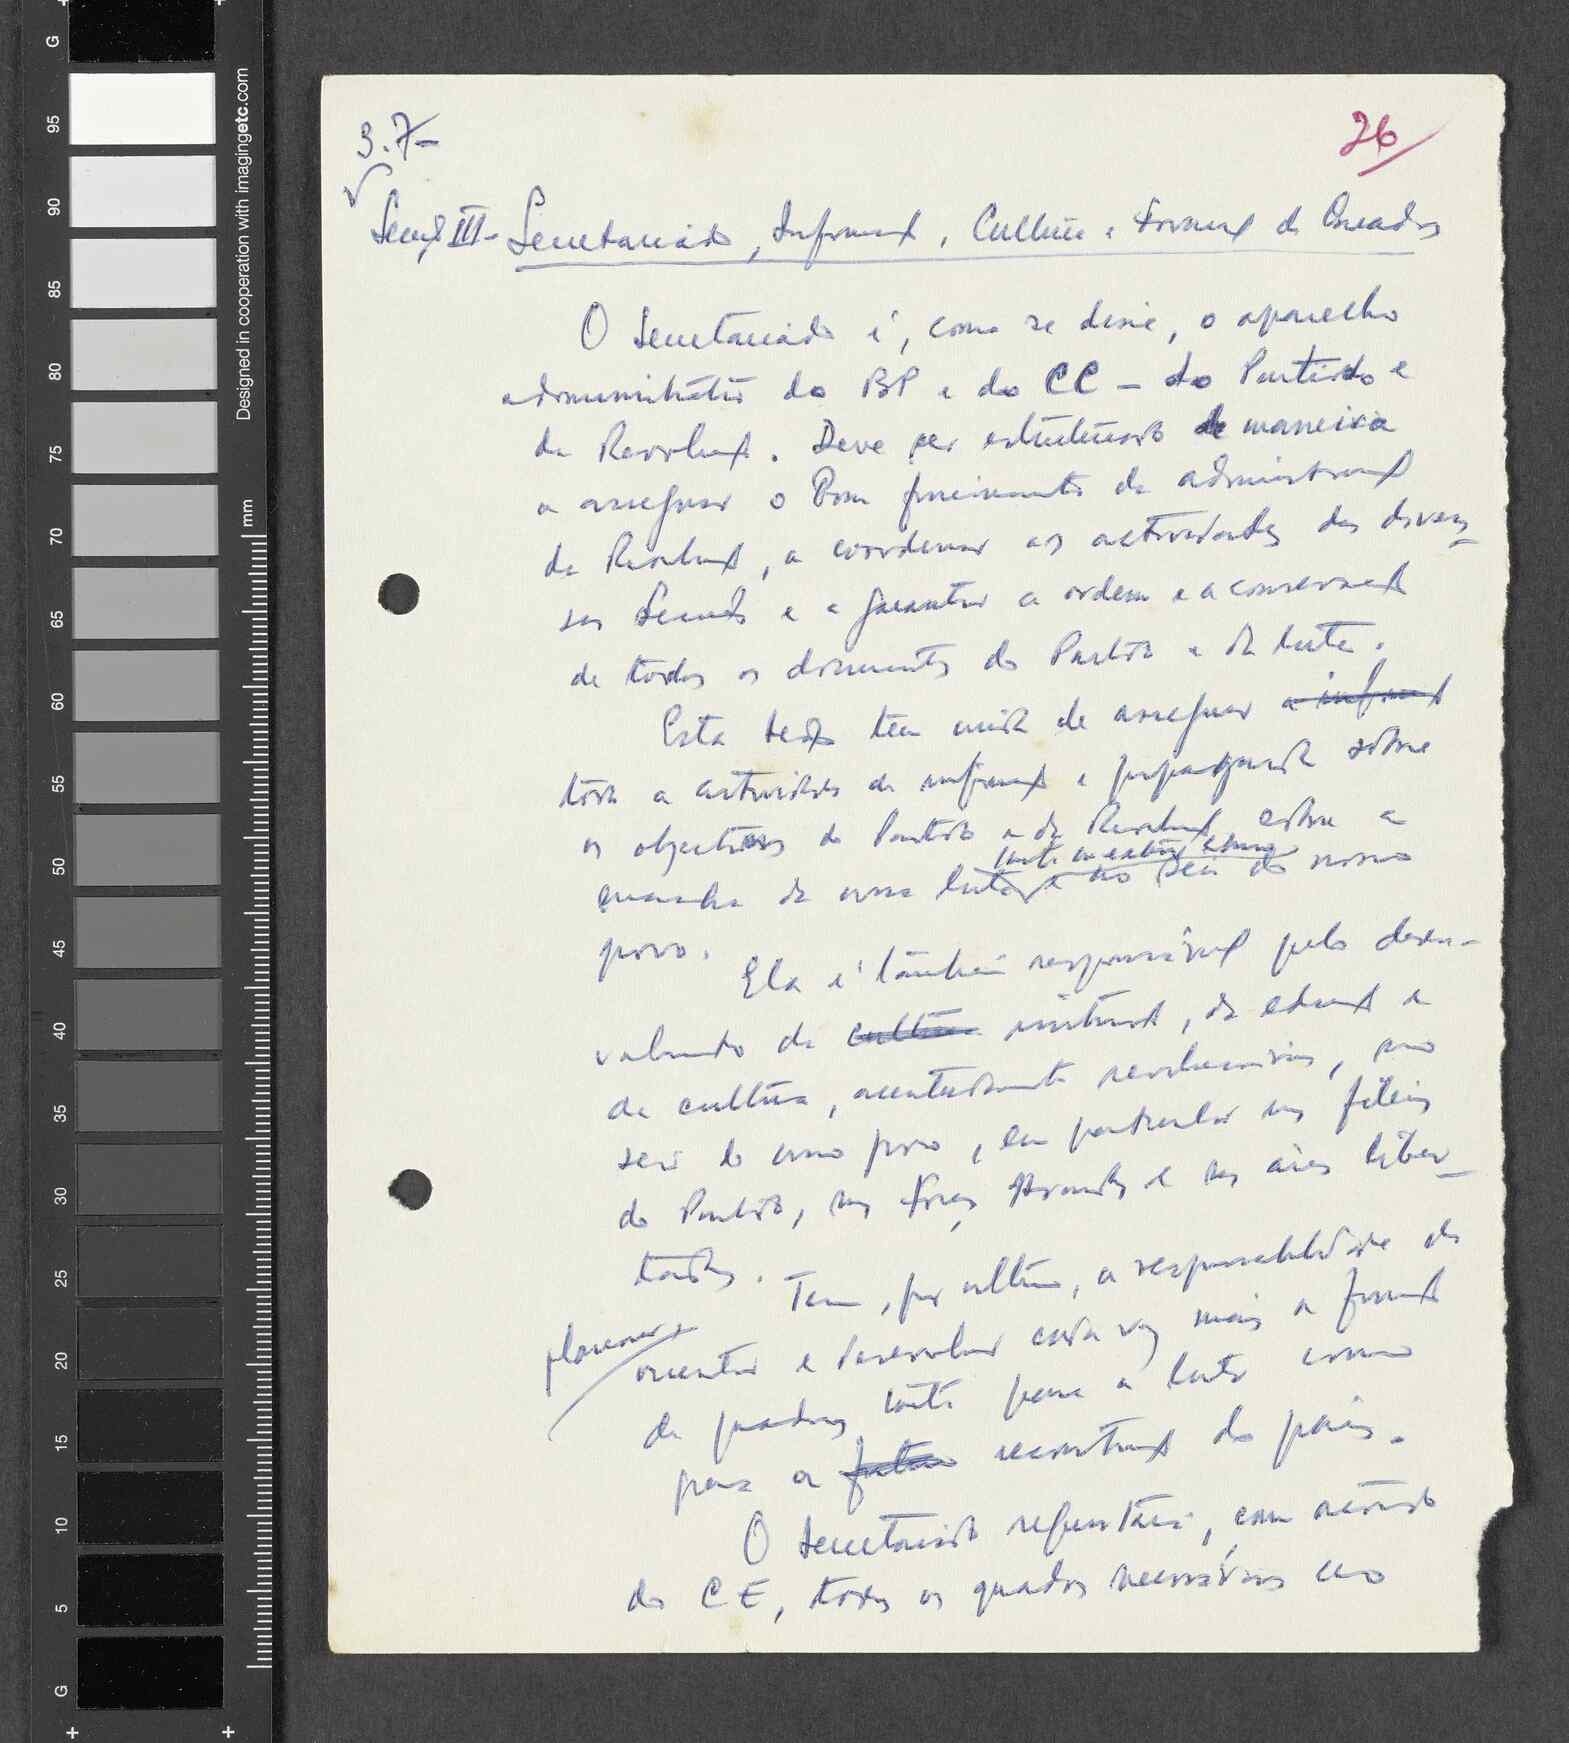 3.7-
26
Secç III - Secretariado, Informaç, Cultura e Formaç de Quadros
O Secretariado é, como se disse, o aparelho
administrativo do BP e do CC - do Partido e
da Revoluç. Deve ser estruturado de maneira
a assegurar o bom funcionamento da administraç
da Revoluç, a coordenar as actividades das diver-
sas Secções e a garantir a ordem e a conservaç
de todos os documentos do Partido e da luta.
Esta secç tem missão de assegurar a informaç
toda a actividade de informaç e propaganda sobre
os objectivos do Partido e da Revoluç, sobre a
marcha da nossa luta, tanto no exterior como no seio do nosso
povo.
Ela é também responsável pelo desen-
volvimento da cultura instruç, da educaç e
da cultura, acentuadamente revolucionárias, no
seio do nosso povo, em particular nas fileiras
do Partido, nas Forças Armadas e nas áreas liber-
tadas.
Tem, por último, a responsabilidade de
planear,
orientar e desenvolver cada vez mais a formaç
de quadros tanto para a luta como
para a futura reconstruç do país.
O Secretariado requisitará, com acordo
do CE, todos os quadros necessários ao